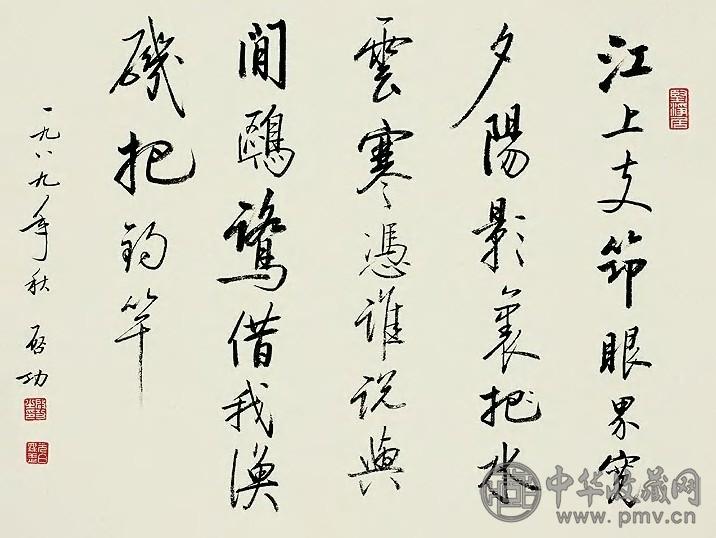 江上支筇眼界寬
夕陽影裏把水
雲寒憑誰說與
閒鷗鷺借我漁
磯把釣竿
一九八九年秋 啟功
堅淨居
中华收藏网
www.pmv.cn